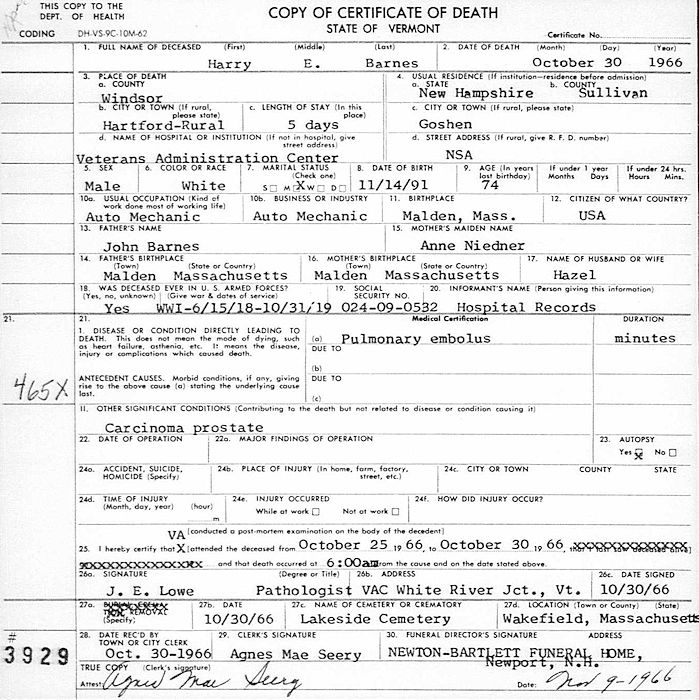 THIS COPY TO THE
DEPT. OF HEALTH
CODING DH-VS-9C-10M-62
COPY OF CERTIFICATE OF DEATH
STATE OF VERMONT
Certificate No.
1. FULL NAME OF DECEASED (First) (Middle) (Last) 2. DATE OF DEATH (Month) (Day) (Year)
Harry E. Barnes October 30 1966
3. PLACE OF DEATH 4. USUAL RESIDENCE (If institution—residence before admission)
a. COUNTY a. STATE b. COUNTY
Windsor New Hampshire Sullivan
b. CITY OR TOWN (If rural, please state) c. LENGTH OF STAY (In this place) c. CITY OR TOWN (If rural, please state)
Hartford-Rural 5 days Goshen
d. NAME OF HOSPITAL OR INSTITUTION (If not in hospital, give street address) d. STREET ADDRESS (If rural, give R. F. D. number)
Veterans Administration Center NSA
5. SEX 6. COLOR OR RACE 7. MARITAL STATUS (Check one) 8. DATE OF BIRTH 9. AGE (In years last birthday) If under 1 year Months Days If under 24 hrs. Hours Mins.
Male White S□ M X W□ D□ 11/14/91 74
10a. USUAL OCCUPATION (Kind of work done most of working life) 10b. BUSINESS OR INDUSTRY 11. BIRTHPLACE 12. CITIZEN OF WHAT COUNTRY?
Auto Mechanic Auto Mechanic Malden, Mass. USA
13. FATHER'S NAME 15. MOTHER'S MAIDEN NAME
John Barnes Anne Niedner
14. FATHER'S BIRTHPLACE (Town) (State or Country) 16. MOTHER'S BIRTHPLACE (Town) (State or Country) 17. NAME OF HUSBAND OR WIFE
Malden Massachusetts Malden Massachusetts Hazel
18. WAS DECEASED EVER IN U. S. ARMED FORCES? (Yes, no, unknown) (Give war & dates of service) 19. SOCIAL SECURITY NO. 20. INFORMANT'S NAME (Person giving this information)
Yes WWI-6/15/18-10/31/19 024-09-0532 Hospital Records
21. 21. Medical Certification DURATION
I. DISEASE OR CONDITION DIRECTLY LEADING TO
DEATH. This does not mean the mode of dying, such
as heart failure, asthenia, etc. It means the disease,
injury or complications which caused death.
(a) Pulmonary embolus minutes
DUE TO
(b)
465X
ANTECEDENT CAUSES. Morbid conditions, if any, giving
rise to the above cause (a) stating the underlying cause
last.
DUE TO
(c)
II. OTHER SIGNIFICANT CONDITIONS (Contributing to the death but not related to disease or condition causing it)
Carcinoma prostate
22. DATE OF OPERATION 22a. MAJOR FINDINGS OF OPERATION 23. AUTOPSY
Yes X No □
24a. ACCIDENT, SUICIDE, HOMICIDE (Specify) 24b. PLACE OF INJURY (In home, farm, factory, street, etc.) 24c. CITY OR TOWN COUNTY STATE
24d. TIME OF INJURY (Month, day, year) (hour) m 24e. INJURY OCCURRED 24f. HOW DID INJURY OCCUR?
While at work □ Not at work □
VA (conducted a post-mortem examination on the body of the decedent)
25. I hereby certify that X (attended the deceased from October 25 1966, to October 30 1966, that I last saw deceased alive)
and that death occurred at 6:00am from the cause and on the date stated above.
26a. SIGNATURE (Degree or Title) 26b. ADDRESS 26c. DATE SIGNED
J. E. Lowe Pathologist VAC White River Jct., Vt. 10/30/66
27a. BURIAL, CREMATION, REMOVAL (Specify) 27b. DATE 27c. NAME OF CEMETERY OR CREMATORY 27d. LOCATION (Town or County) (State)
10/30/66 Lakeside Cemetery Wakefield, Massachusetts
28. DATE REC'D BY TOWN OR CITY CLERK 29. CLERK'S SIGNATURE 30. FUNERAL DIRECTOR'S SIGNATURE ADDRESS
# 3929
Oct. 30-1966 Agnes Mae Seery NEWTON-BARTLETT FUNERAL HOME,
Newport, N.H.
TRUE COPY (Clerk's signature)
Attest: Agnes Mae Seery Date: Nov 9-1966